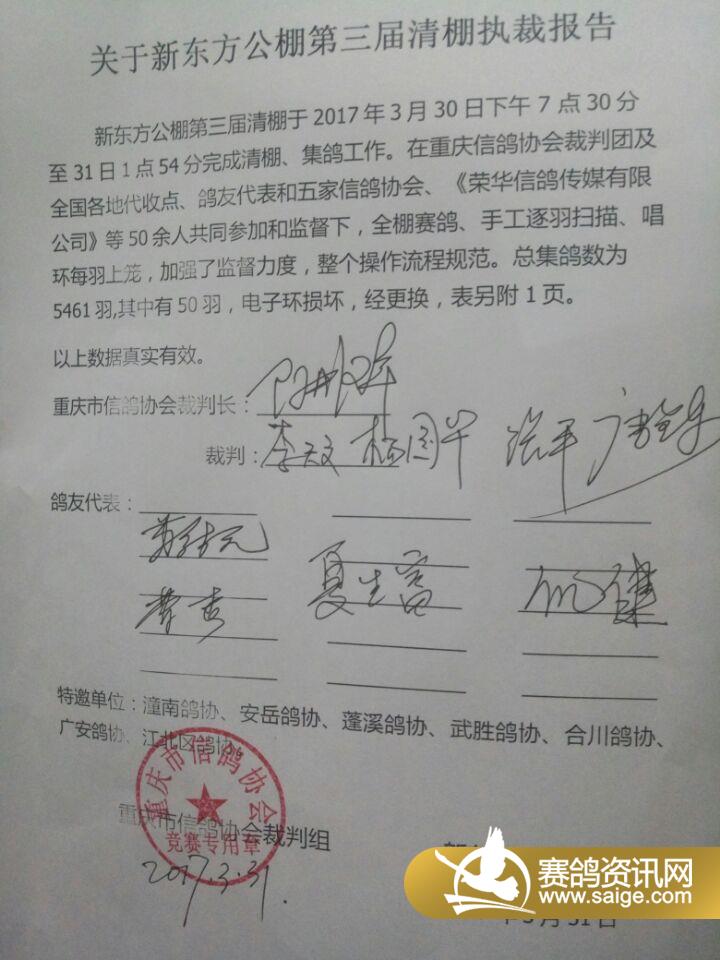 关于新东方公棚第三届清棚执裁报告
新东方公棚第三届清棚于2017年3月30日下午7点30分
至31日1点54分完成清棚、集鸽工作。在重庆信鸽协会裁判团及
全国各地代收点、鸽友代表和五家信鸽协会、《荣华信鸽传媒有限
公司》等50余人共同参加和监督下，全棚赛鸽、手工逐羽扫描、唱
环每羽上笼，加强了监督力度，整个操作流程规范。总集鸽数为
5461羽,其中有50羽，电子环损坏，经更换，表另附1页。
以上数据真实有效。
重庆市信鸽协会裁判长：
裁判：李天文 杨国华
鸽友代表：
夏生富
特邀单位：潼南鸽协、安岳鸽协、蓬溪鸽协、武胜鸽协、合川鸽协、
广安鸽协、江北区鸽协
重庆市信鸽协会
竞赛专用章
重庆市信鸽协会裁判组
2017.3.31
月31日
赛鸽资讯网
www.saige.com